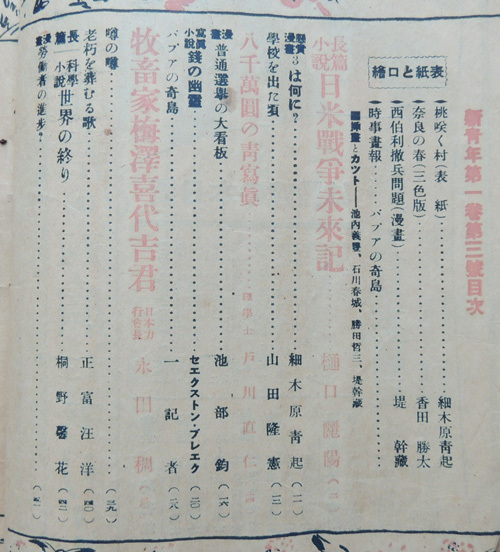 新青年第一卷第三號目次
表紙と口繪
桃咲く村(表紙)………細木原青起
奈良の春(三色版)………香田勝太
西伯利撤兵問題(漫畫)………堤幹藏
時事畫報………パプアの奇島
挿畫とカツト――池内、石川春城、勝田哲三、堤幹藏
長篇小說 日米戰爭未來記………樋口麗陽
懸賞漫畫 3は何に?………細木原青起(一一)
學校を出た頃………山田隆憲(一三)
八千萬圓の青寫眞………理學士 戸川直仁
漫畫 普通選擧の大看板………池部鈞(一六)
寫眞小說 錢の幽靈………セエクストン・ブレエク(二〇)
パプアの奇島………一記者(二八)
牧畜家梅澤喜代吉君………日本力行會長 永田稠
噂の噂………(三九)
老朽を葬むる歌………正富汪洋(四〇)
長篇科學小說 世界の終り………桐野馨花(四二)
漫畫 勞働者の進步?………(五一)